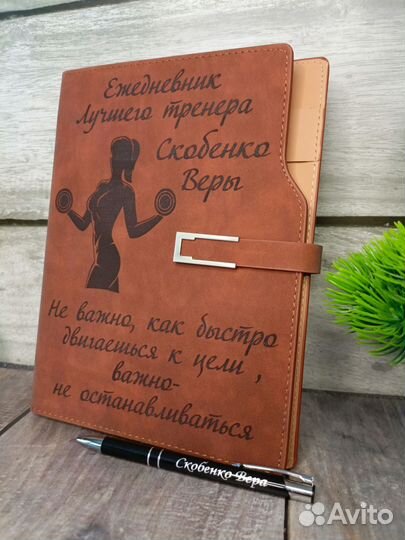 Ежедневник
Лучшего тренера
Скобенко
Веры
Не важно, как быстро
двигаешься к цели ,
важно-
не останавливаться
Скобенко Вера
Avito